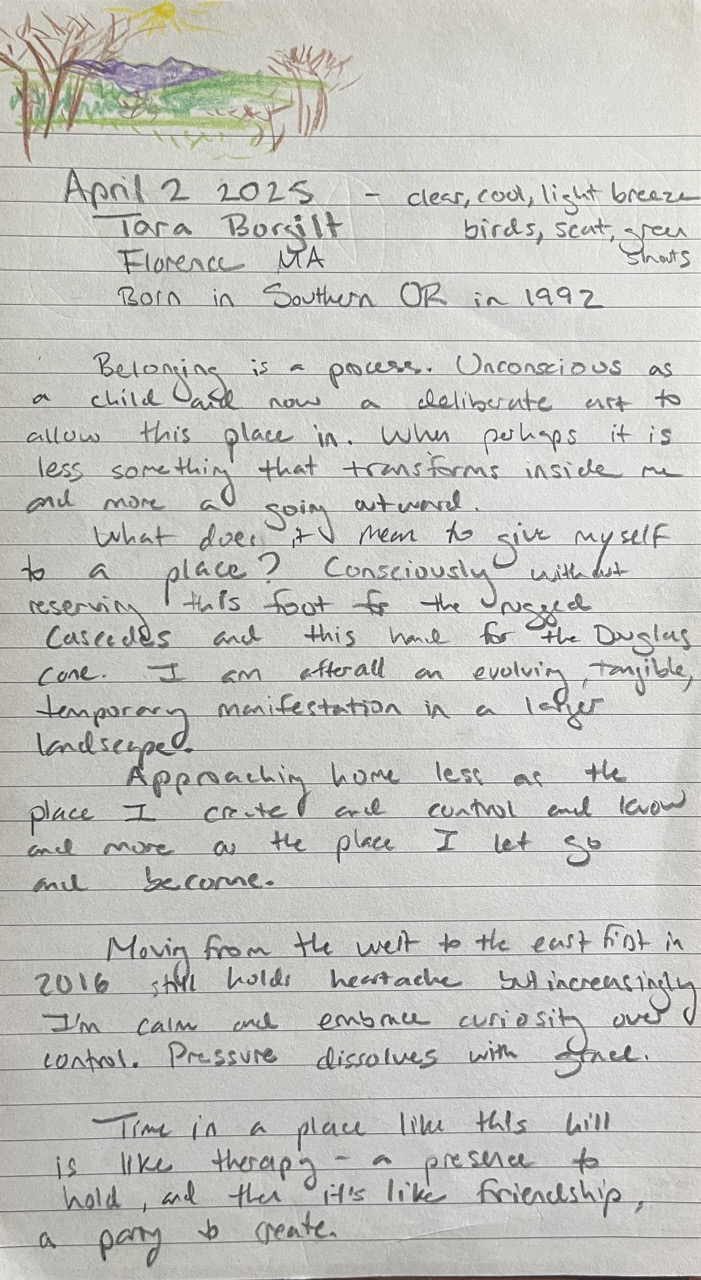 April 2 2025 - clear, cool, light breeze
Tara Borgilt birds, scat, green
Florence MA shoots
Born in Southern OR in 1992
Belonging is a process. Unconscious as
a child and now a deliberate act to
allow this place in. When perhaps it is
less something that transforms inside me
and more a going outward.
What does it mean to give myself
to a place? Consciously without
reserving this foot for the rugged
Cascades and this hand for the Douglas
cone. I am afterall an evolving, tangible,
temporary manifestation in a larger
landscape.
Approaching home less as the
place I create and control and know
and more as the place I let go
and become.
Moving from the west to the east first in
2016 still holds heartache but increasingly
I'm calm and embrace curiosity over
control. Pressure dissolves with
Time in a place like this hill
is like therapy - a presence to
hold, and then it's like friendship,
a party to create.